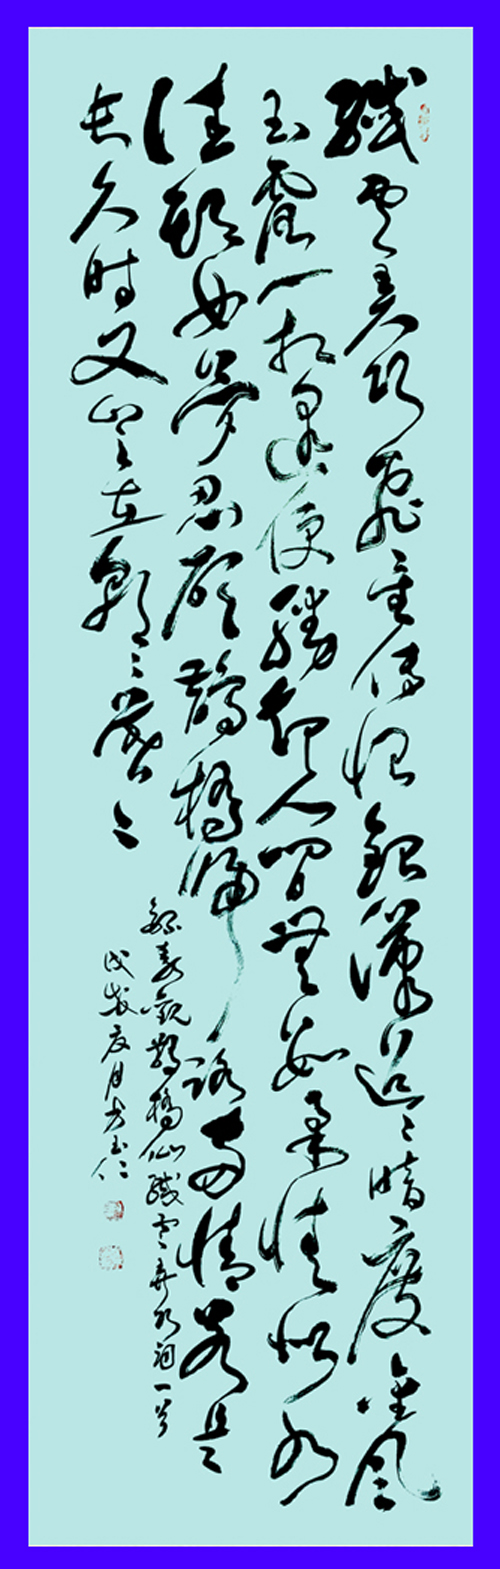 纖雲弄巧飛星傳恨銀漢迢〻暗度金風
玉露一相逢便勝卻人間無數柔情似水
佳期如夢忍顧鵲橋歸路兩情若是
長久時又豈在朝〻暮〻
錄秦觀鵲橋仙纖雲弄巧詞一首
戊戌夏月方玉仁